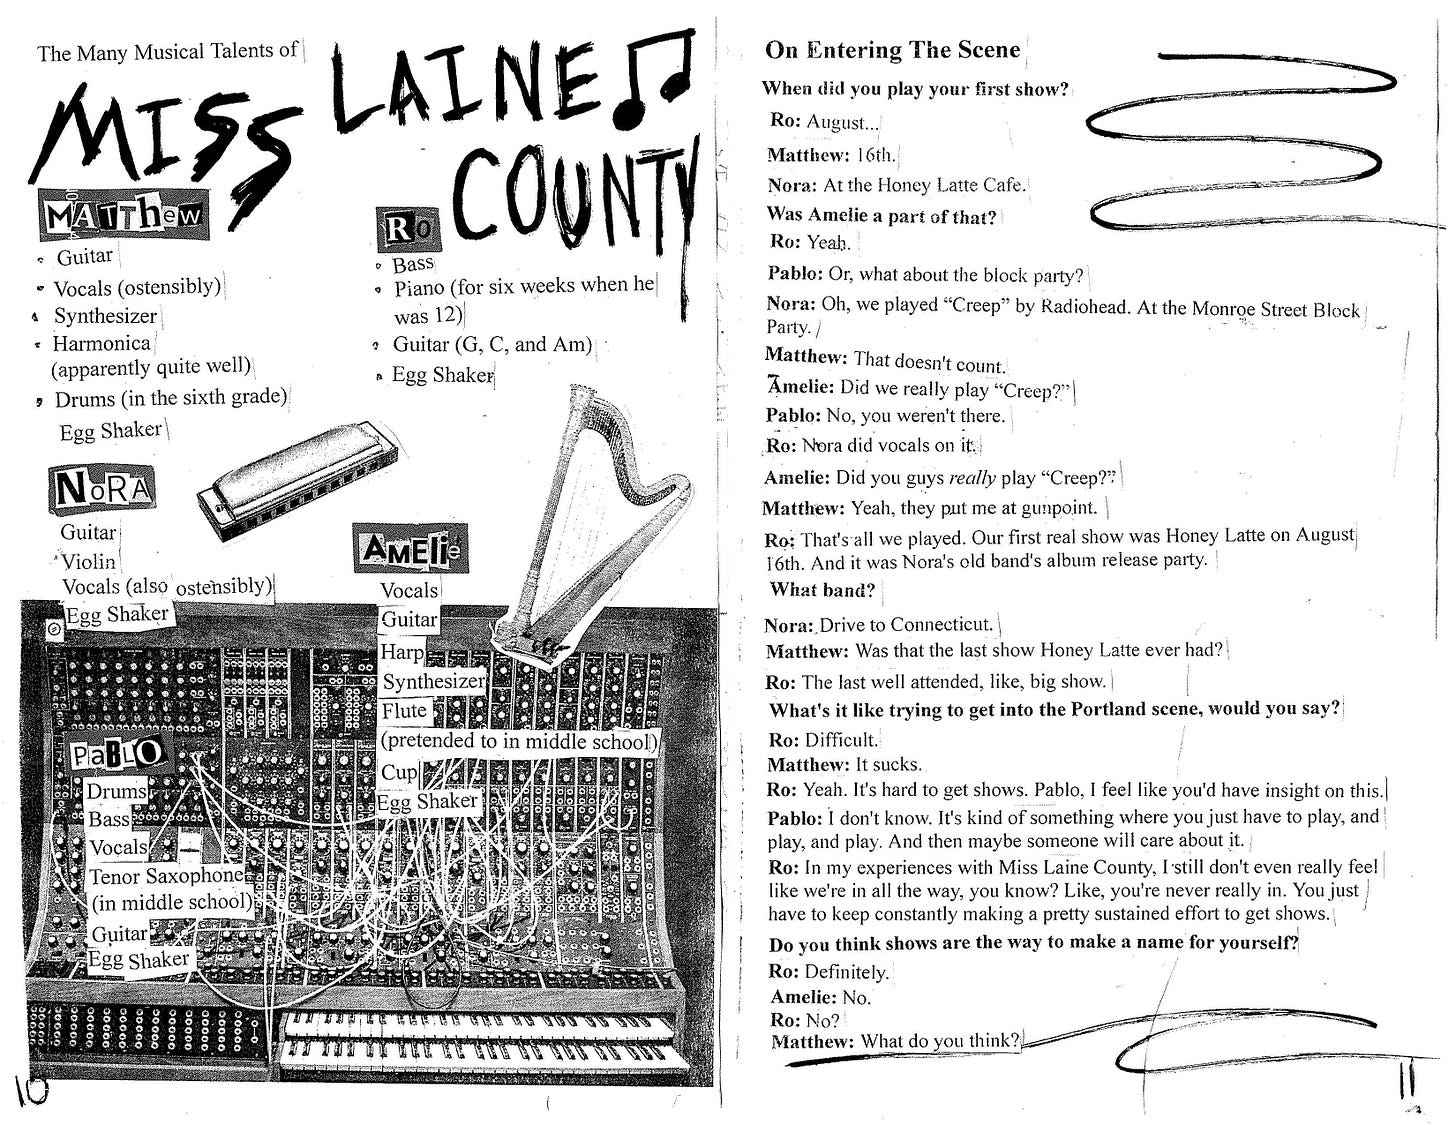 The Many Musical Talents of
MISS
LAINE
COUNTY
MATThew
Guitar
Vocals (ostensibly)
Synthesizer
Harmonica
(apparently quite well)
Drums (in the sixth grade)
Egg Shaker
Ro
Bass
Piano (for six weeks when he
was 12)
Guitar (G, C, and Am)
Egg Shaker
NoRA
Guitar
Violin
Vocals (also ostensibly)
Egg Shaker
AMElie
Vocals
Guitar
Harp
Synthesizer
Flute
(pretended to in middle school)
Cup
Egg Shaker
PaBLO
Drums
Bass
Vocals
Tenor Saxophone
(in middle school)
Guitar
Egg Shaker
10
On Entering The Scene
When did you play your first show?
Ro: August...
Matthew: 16th.
Nora: At the Honey Latte Cafe.
Was Amelie a part of that?
Ro: Yeah.
Pablo: Or, what about the block party?
Nora: Oh, we played “Creep” by Radiohead. At the Monroe Street Block
Party.
Matthew: That doesn't count.
Amelie: Did we really play “Creep?”
Pablo: No, you weren't there.
Ro: Nora did vocals on it.
Amelie: Did you guys really play “Creep?”
Matthew: Yeah, they put me at gunpoint.
Ro: That's all we played. Our first real show was Honey Latte on August
16th. And it was Nora's old band's album release party.
What band?
Nora: Drive to Connecticut.
Matthew: Was that the last show Honey Latte ever had?
Ro: The last well attended, like, big show.
What's it like trying to get into the Portland scene, would you say?
Ro: Difficult.
Matthew: It sucks.
Ro: Yeah. It's hard to get shows. Pablo, I feel like you'd have insight on this.
Pablo: I don't know. It's kind of something where you just have to play, and
play, and play. And then maybe someone will care about it.
Ro: In my experiences with Miss Laine County, I still don't even really feel
like we're in all the way, you know? Like, you're never really in. You just
have to keep constantly making a pretty sustained effort to get shows.
Do you think shows are the way to make a name for yourself?
Ro: Definitely.
Amelie: No.
Ro: No?
Matthew: What do you think?
11